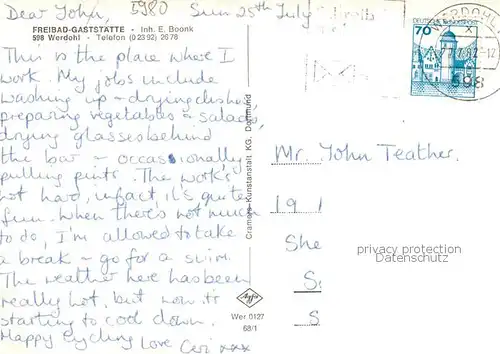 Dear John, 5980 Sun 25th July
FREIBAD-GASTSTÄTTE - Inh. E. Boonk
598 Werdohl - Telefon (0 23 92) 26 78
This is the place where I
work. My jobs include
washing up - drying dishes,
preparing vegetables + salads,
drying glasses behind
the bar - occasionally
pulling pints. The work's
not hard, infact, it's quite
fun. When there's not much
to do, I'm allowed to take
a break - go for a swim.
The weather here has been
really hot, but now it's
starting to cool down.
Happy Cycling
Love Ceri xxx
Cramers Kunstanstalt KG, Dortmund
Agfa
Wer 0127
68/1
DEUTSCHE BUNDESPOST
70
WERDOHL
598
Mr. John Teather.
19
She
S
S
privacy protection
Datenschutz